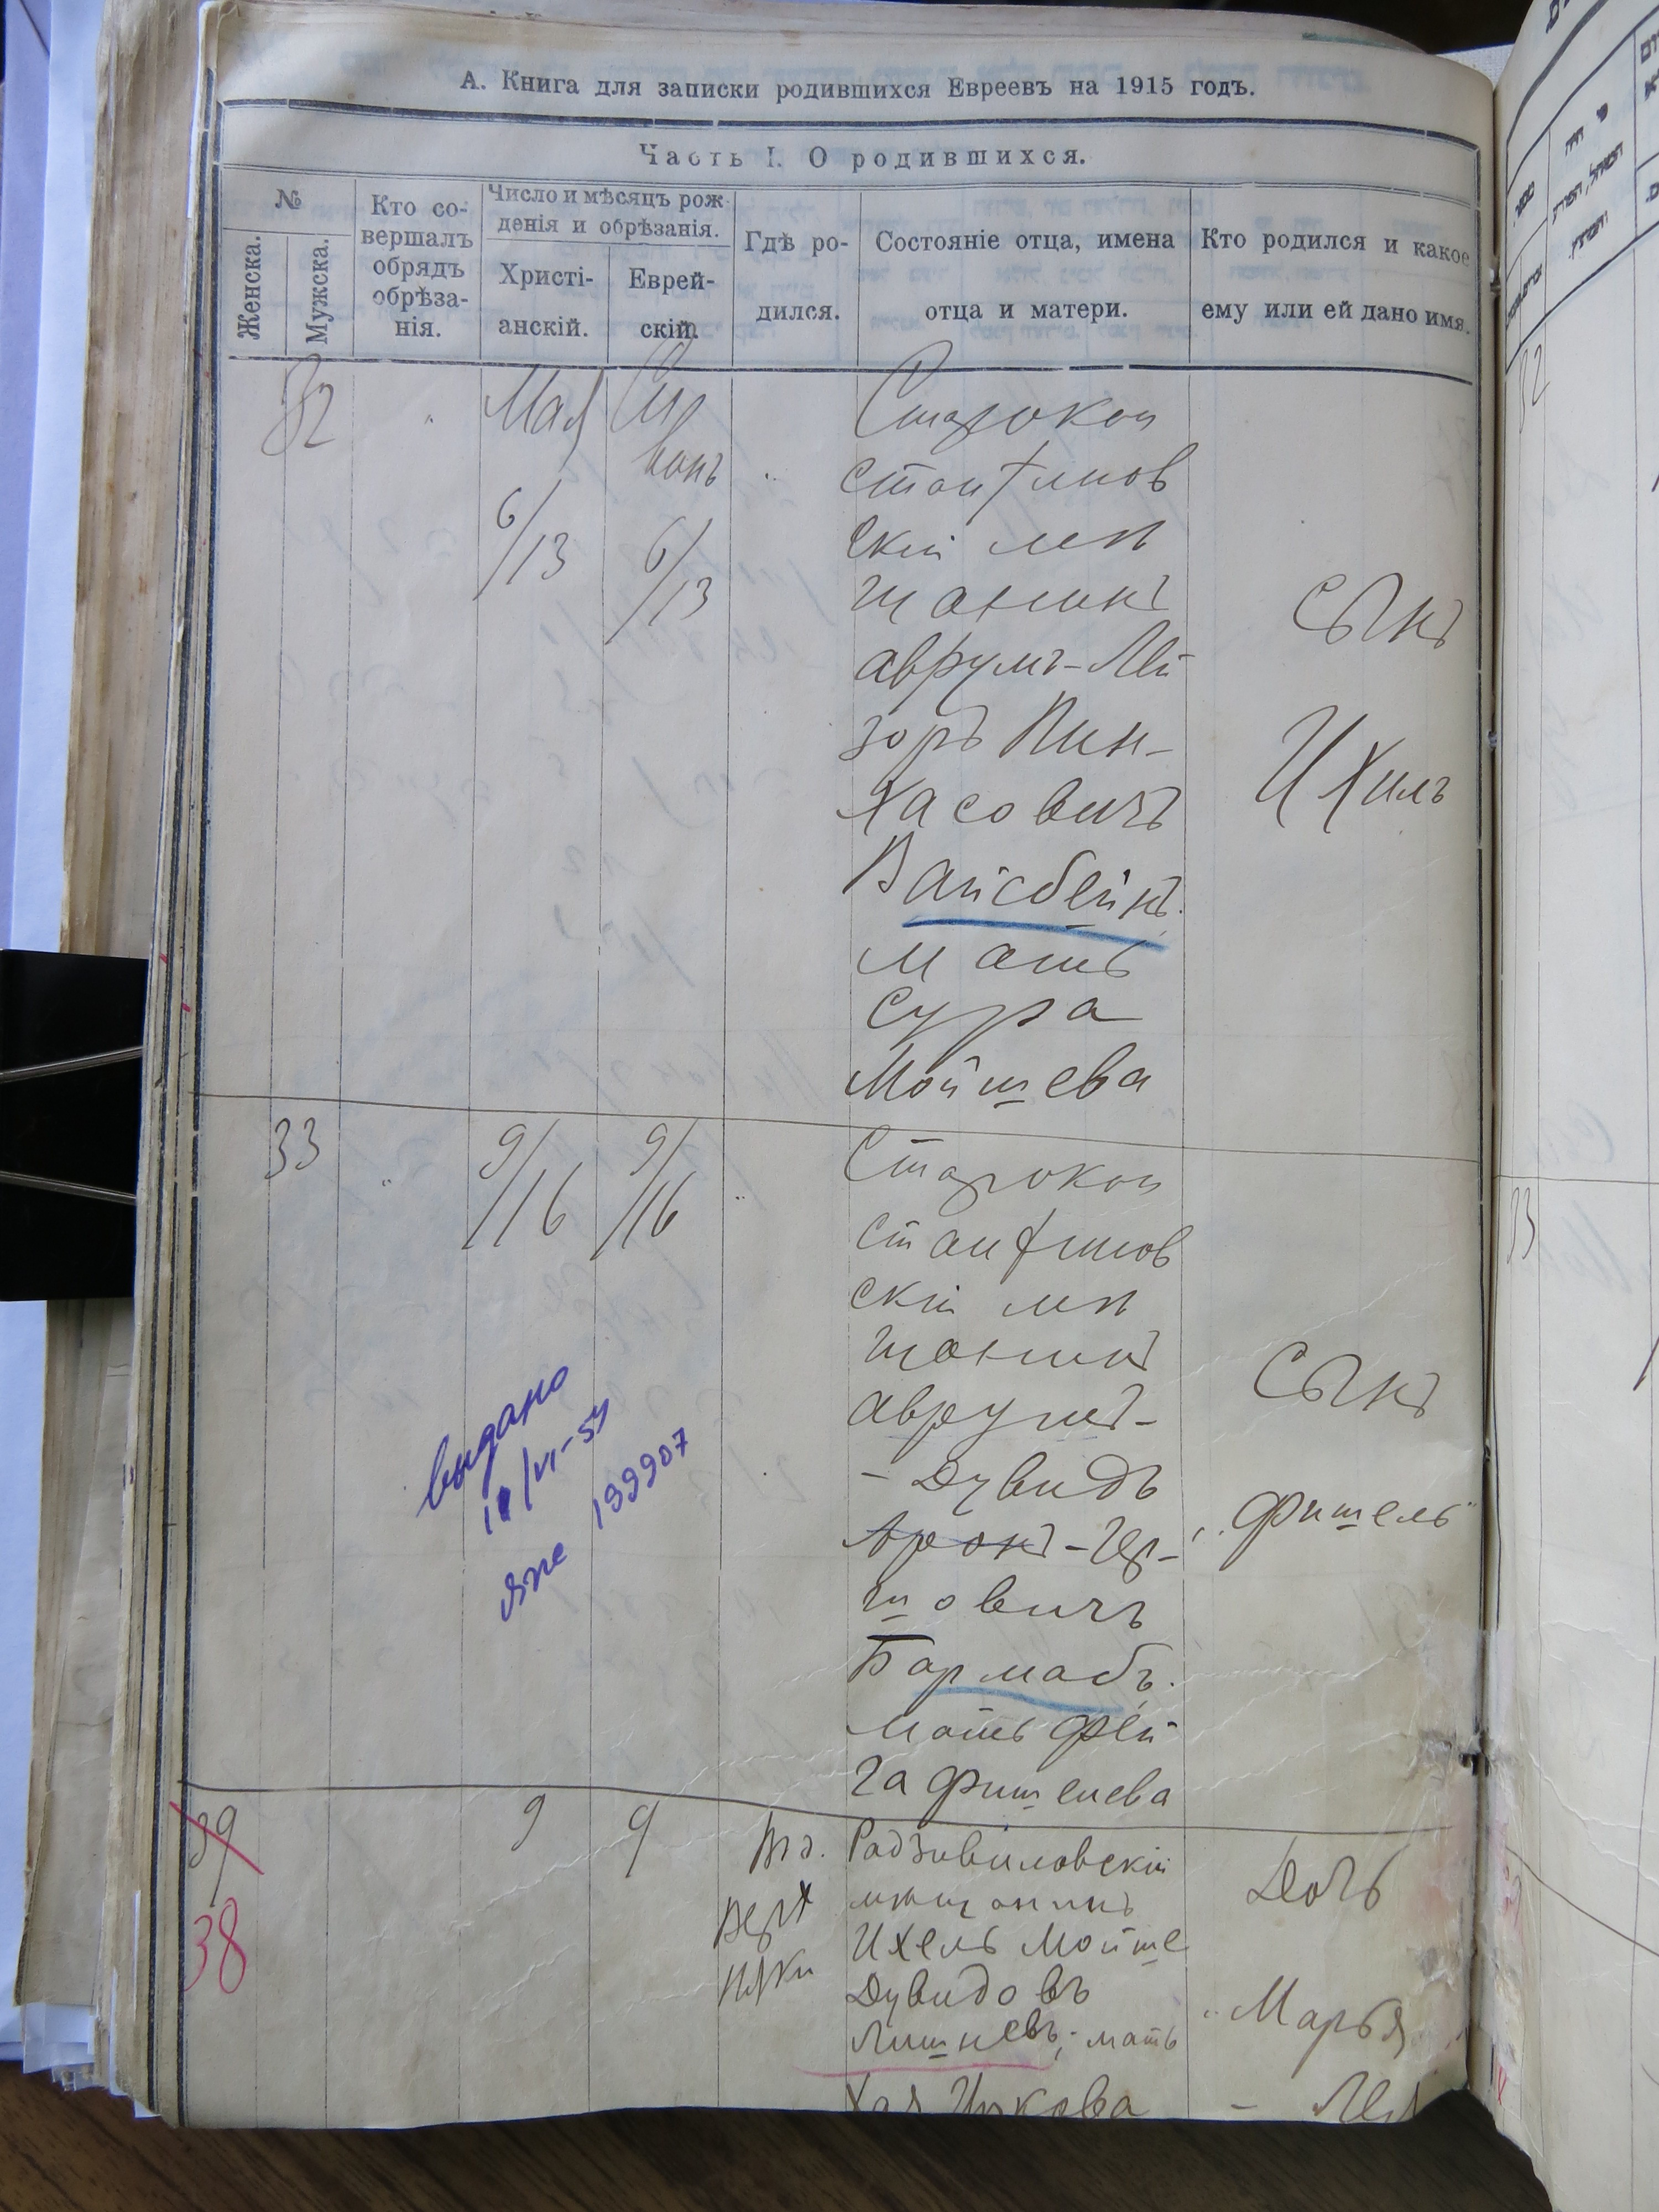 А. Книга для записки родившихся Евреевъ на 1915 годъ.
Часть I. О родившихся.
№
Женска.
Мужска.
Кто со-
вершалъ
обрядъ
обрѣза-
нія.
Число и мѣсяцъ рож
денія и обрѣзанія.
Христі-
анскій.
Еврей-
скій.
Гдѣ ро-
дился.
Состояніе отца, имена
отца и матери.
Кто родился и какое
ему или ей дано имя.
32
Мая
6/13
Си
вонъ
6/13
Старокон
стантинов
скій мѣ
щанинъ
Аврумъ-Лей
зоръ Пин-
хасовичъ
Вайсбейнъ.
мать
Сура
Мойшева
сынъ
Ихиль
33
9/16
9/16
Старокон
стантинов
скій мѣ
щанинъ
Аврумъ-
- Дувидъ
Аронъ-Гер-
шовичъ
Бармадъ.
мать Фей
га Фишелева
Сынъ
"Фишель"
выдано
199907
39
38
9
9
Радзивиловскій
мѣщанинъ
Ихель Мойше
Дувидовъ
Лишневъ; мать
Хая Ицкова
Дочь
"Марья
- Лея